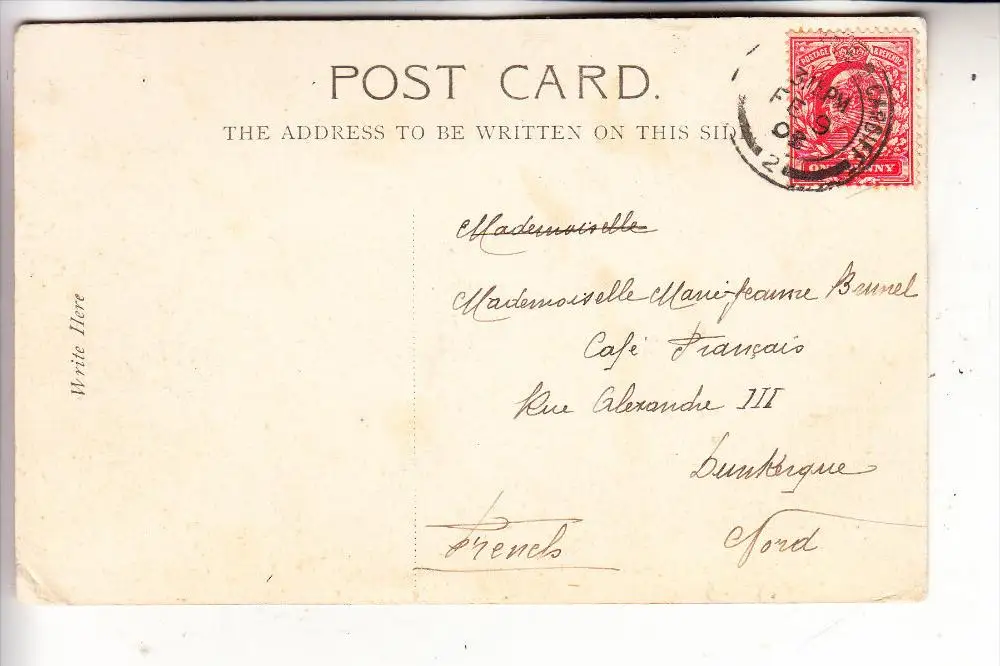 POST CARD.
THE ADDRESS TO BE WRITTEN ON THIS SID
POSTAGE & REVENUE
PM
FE 9
2
ONE PENNY
Mademoiselle
Mademoiselle Marie-Jeanne Brunel
Café Français
Rue Alexandre III
Dunkerque
Nord
French
Write Here